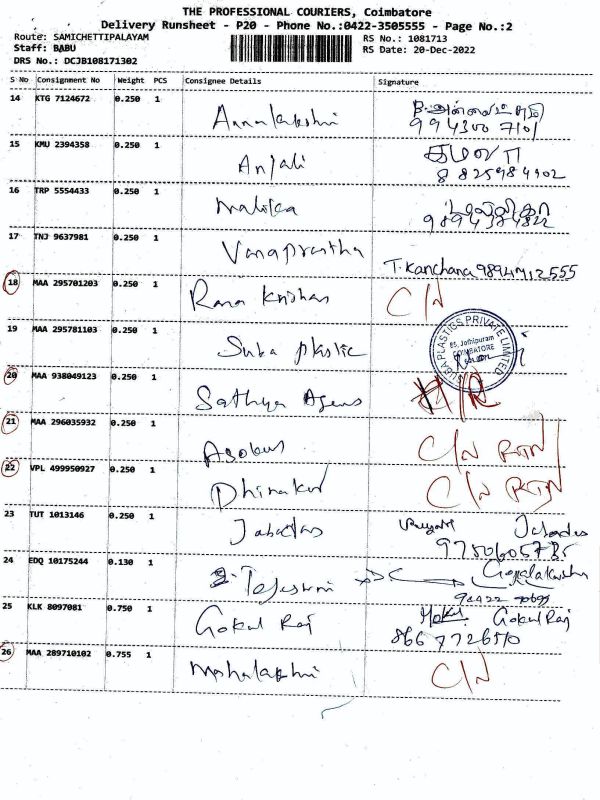 THE PROFESSIONAL COURIERS, Coimbatore
Delivery Runsheet - P20 - Phone No.:0422-3505555 - Page No.:2
Route: SAMICHETTIPALAYAM
Staff: BABU
DRS No.: DCJB108171302
RS No.: 1081713
RS Date: 20-Dec-2022
S No Consignment No Weight PCS Consignee Details Signature
14 KTG 7124672 0.250 1 Annalakshmi
994300 7101
15 KMU 2394358 0.250 1 Anjali கமலா
8825984902
16 TRP 5554433 0.250 1 Malika
17 TNJ 9637981 0.250 1 Vanaprastha T. Kanchana 9894712555
18 MAA 295701203 0.250 1 Rama Krishan C/N
19 MAA 295781103 0.250 1 Suba plastic
SUBA PLASTICS PRIVATE LIMITED
85, Jothipuram
COIMBATORE
20 MAA 938049123 0.250 1 Sathya Agens
21 MAA 296035932 0.250 1 Asokus C/N RTN
22 VPL 499950927 0.250 1 Dhinakar C/N RTN
23 TUT 1013146 0.250 1 Jabadas Jabadas
9750605735
24 EDQ 10175244 0.130 1 Tejaswini Gopalakrishn
25 KLK 8097081 0.750 1 Gokul Raj Gokul Raj
866 7726510
26 MAA 289710102 0.755 1 Mahalakshmi C/N